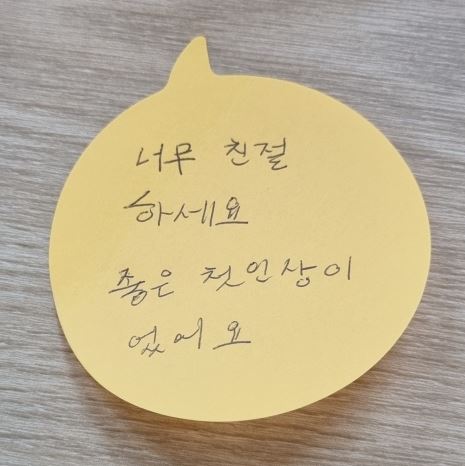 너무 친절
하세요
좋은 첫인상이
었어요